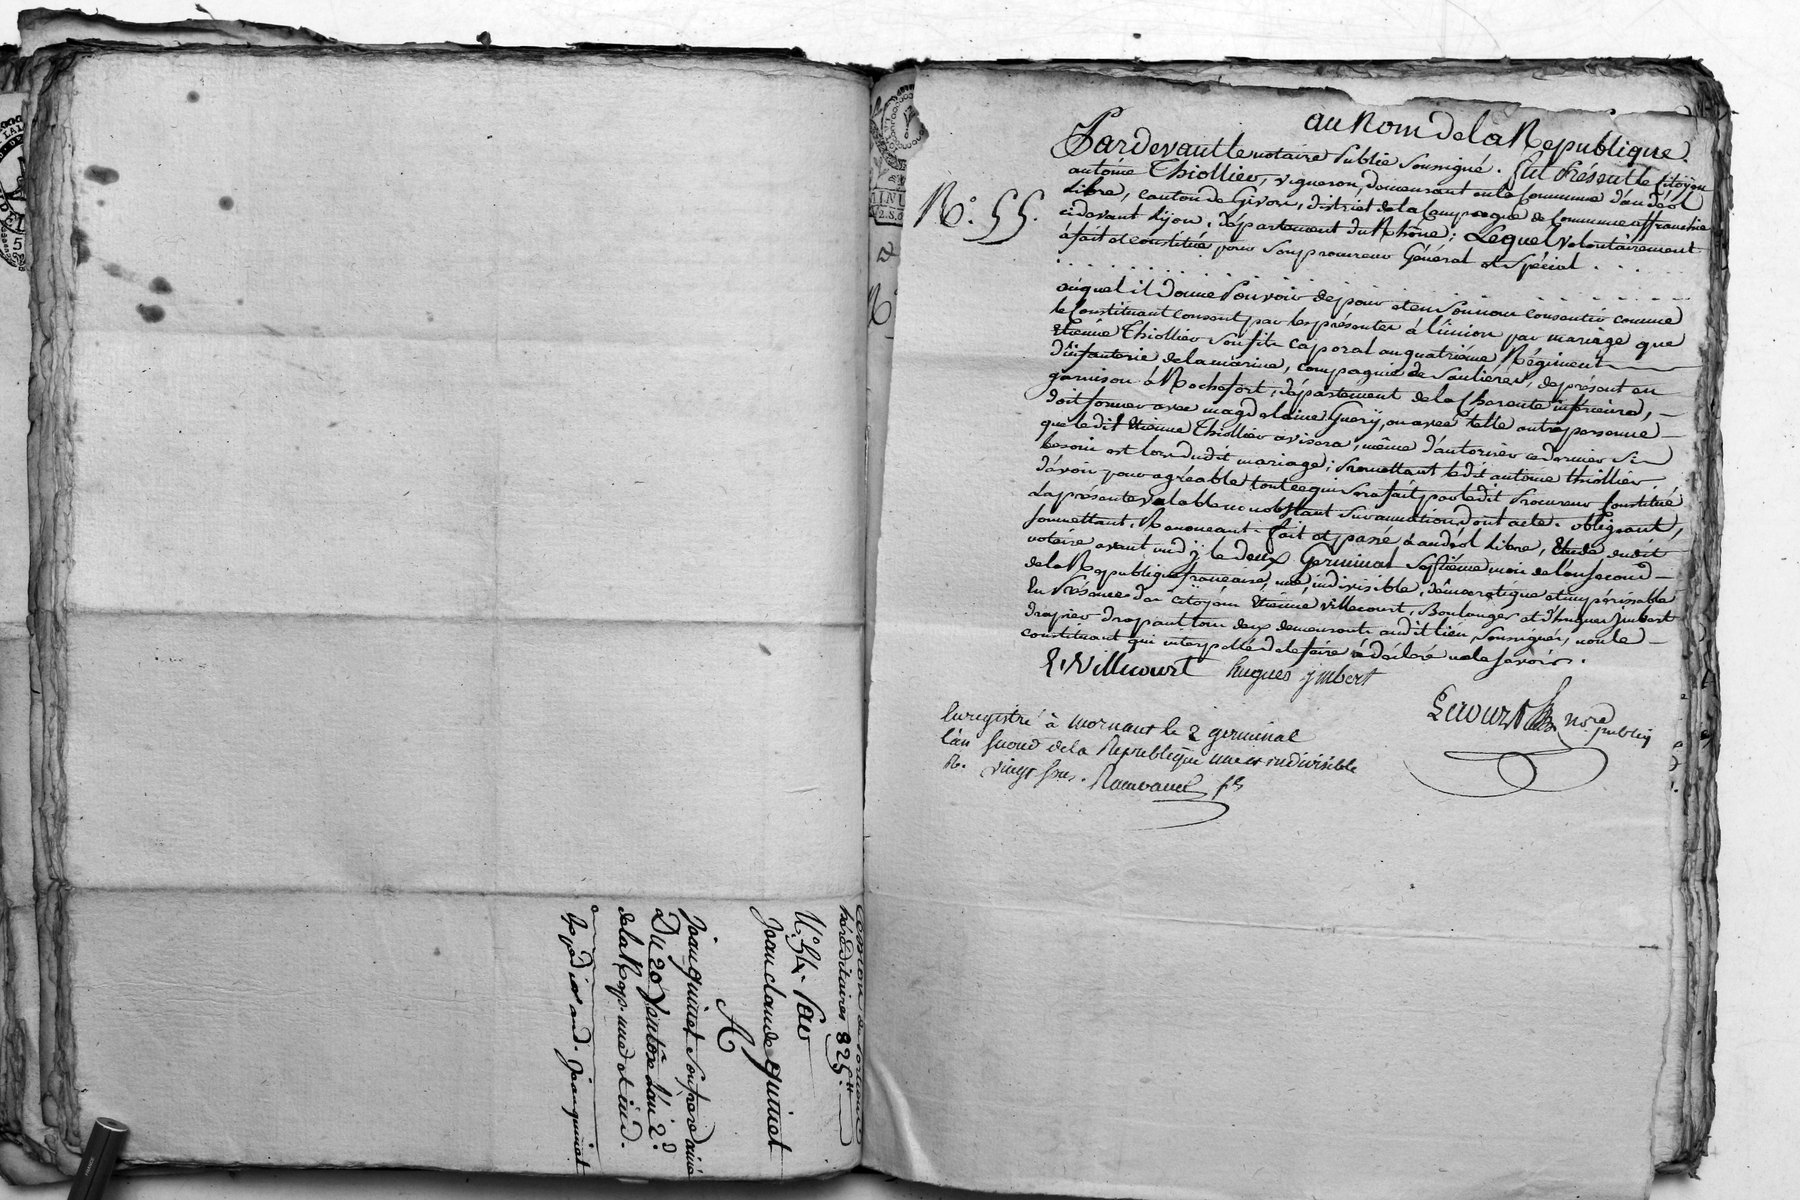 Cession de portions
héréditaires 825.tt
N.° 54. Par
Jean claude Guinet
A
Jean guinet son frere ainé
Du 20 Ventôse L'an 2.d
de la Rep. une et ind.
Expédiée aud. Jean guinet
au Nom de la Republique.
N.° 55.
Pardevant le notaire Public soussigné. fut présent le Citoyen
antoine Thiollier, vigneron, demeurant en la Commune d'andéol
Libre, canton de Givors, district de la Campagne de Commune affranchie
cidevant Lyon, département du Rhône; Lequel volontairement
à fait et constitué pour son procureur Général et Spécial . . . . .
auquel il donne Pouvoir de pour et en son nom consentir comme
le Constituant consent par les présentes à l'union par mariage que
Etienne Thiollier son fils caporal au quatriéme Régiment
d'infanterie de la marine, compagnie de Saulières, de présent en
garnison à Rochefort, département de la Charente inférieure,
doit former avec magdelaine Guery, ou avec telle autre personne
que le dit Etienne Thiollier avisera, même d'autoriser ce dernier Si
besoin est lors dudit mariage; Promettant le dit antoine thiollier
d'avoir pour agréable tout ce qui Sera fait par le dit Procureur Constitué
La présente valable nonobstant Surannation, dont acte. obligeant,
soumettant, Renonceant. fait et passé à andéol Libre, Etude dudit
notaire avant midy le deux Germinal septiéme mois de l'an second
de la Republique francaise, une, indivisible, démocratique et impérissable
En Présence des citoyens Etienne villecourt, Boulanger et d'hugues Jmbert
drapier drapant tous deux demeurants audit lieu, Soussignés, non le
constituant qui interpellé de le faire à déclaré ne le savoir.
E. Villecourt hugues jmbert
nore public
Enregistré à mornant le 2 germinal
l'an second de la Republique une et indivisible
R. vingt sous.